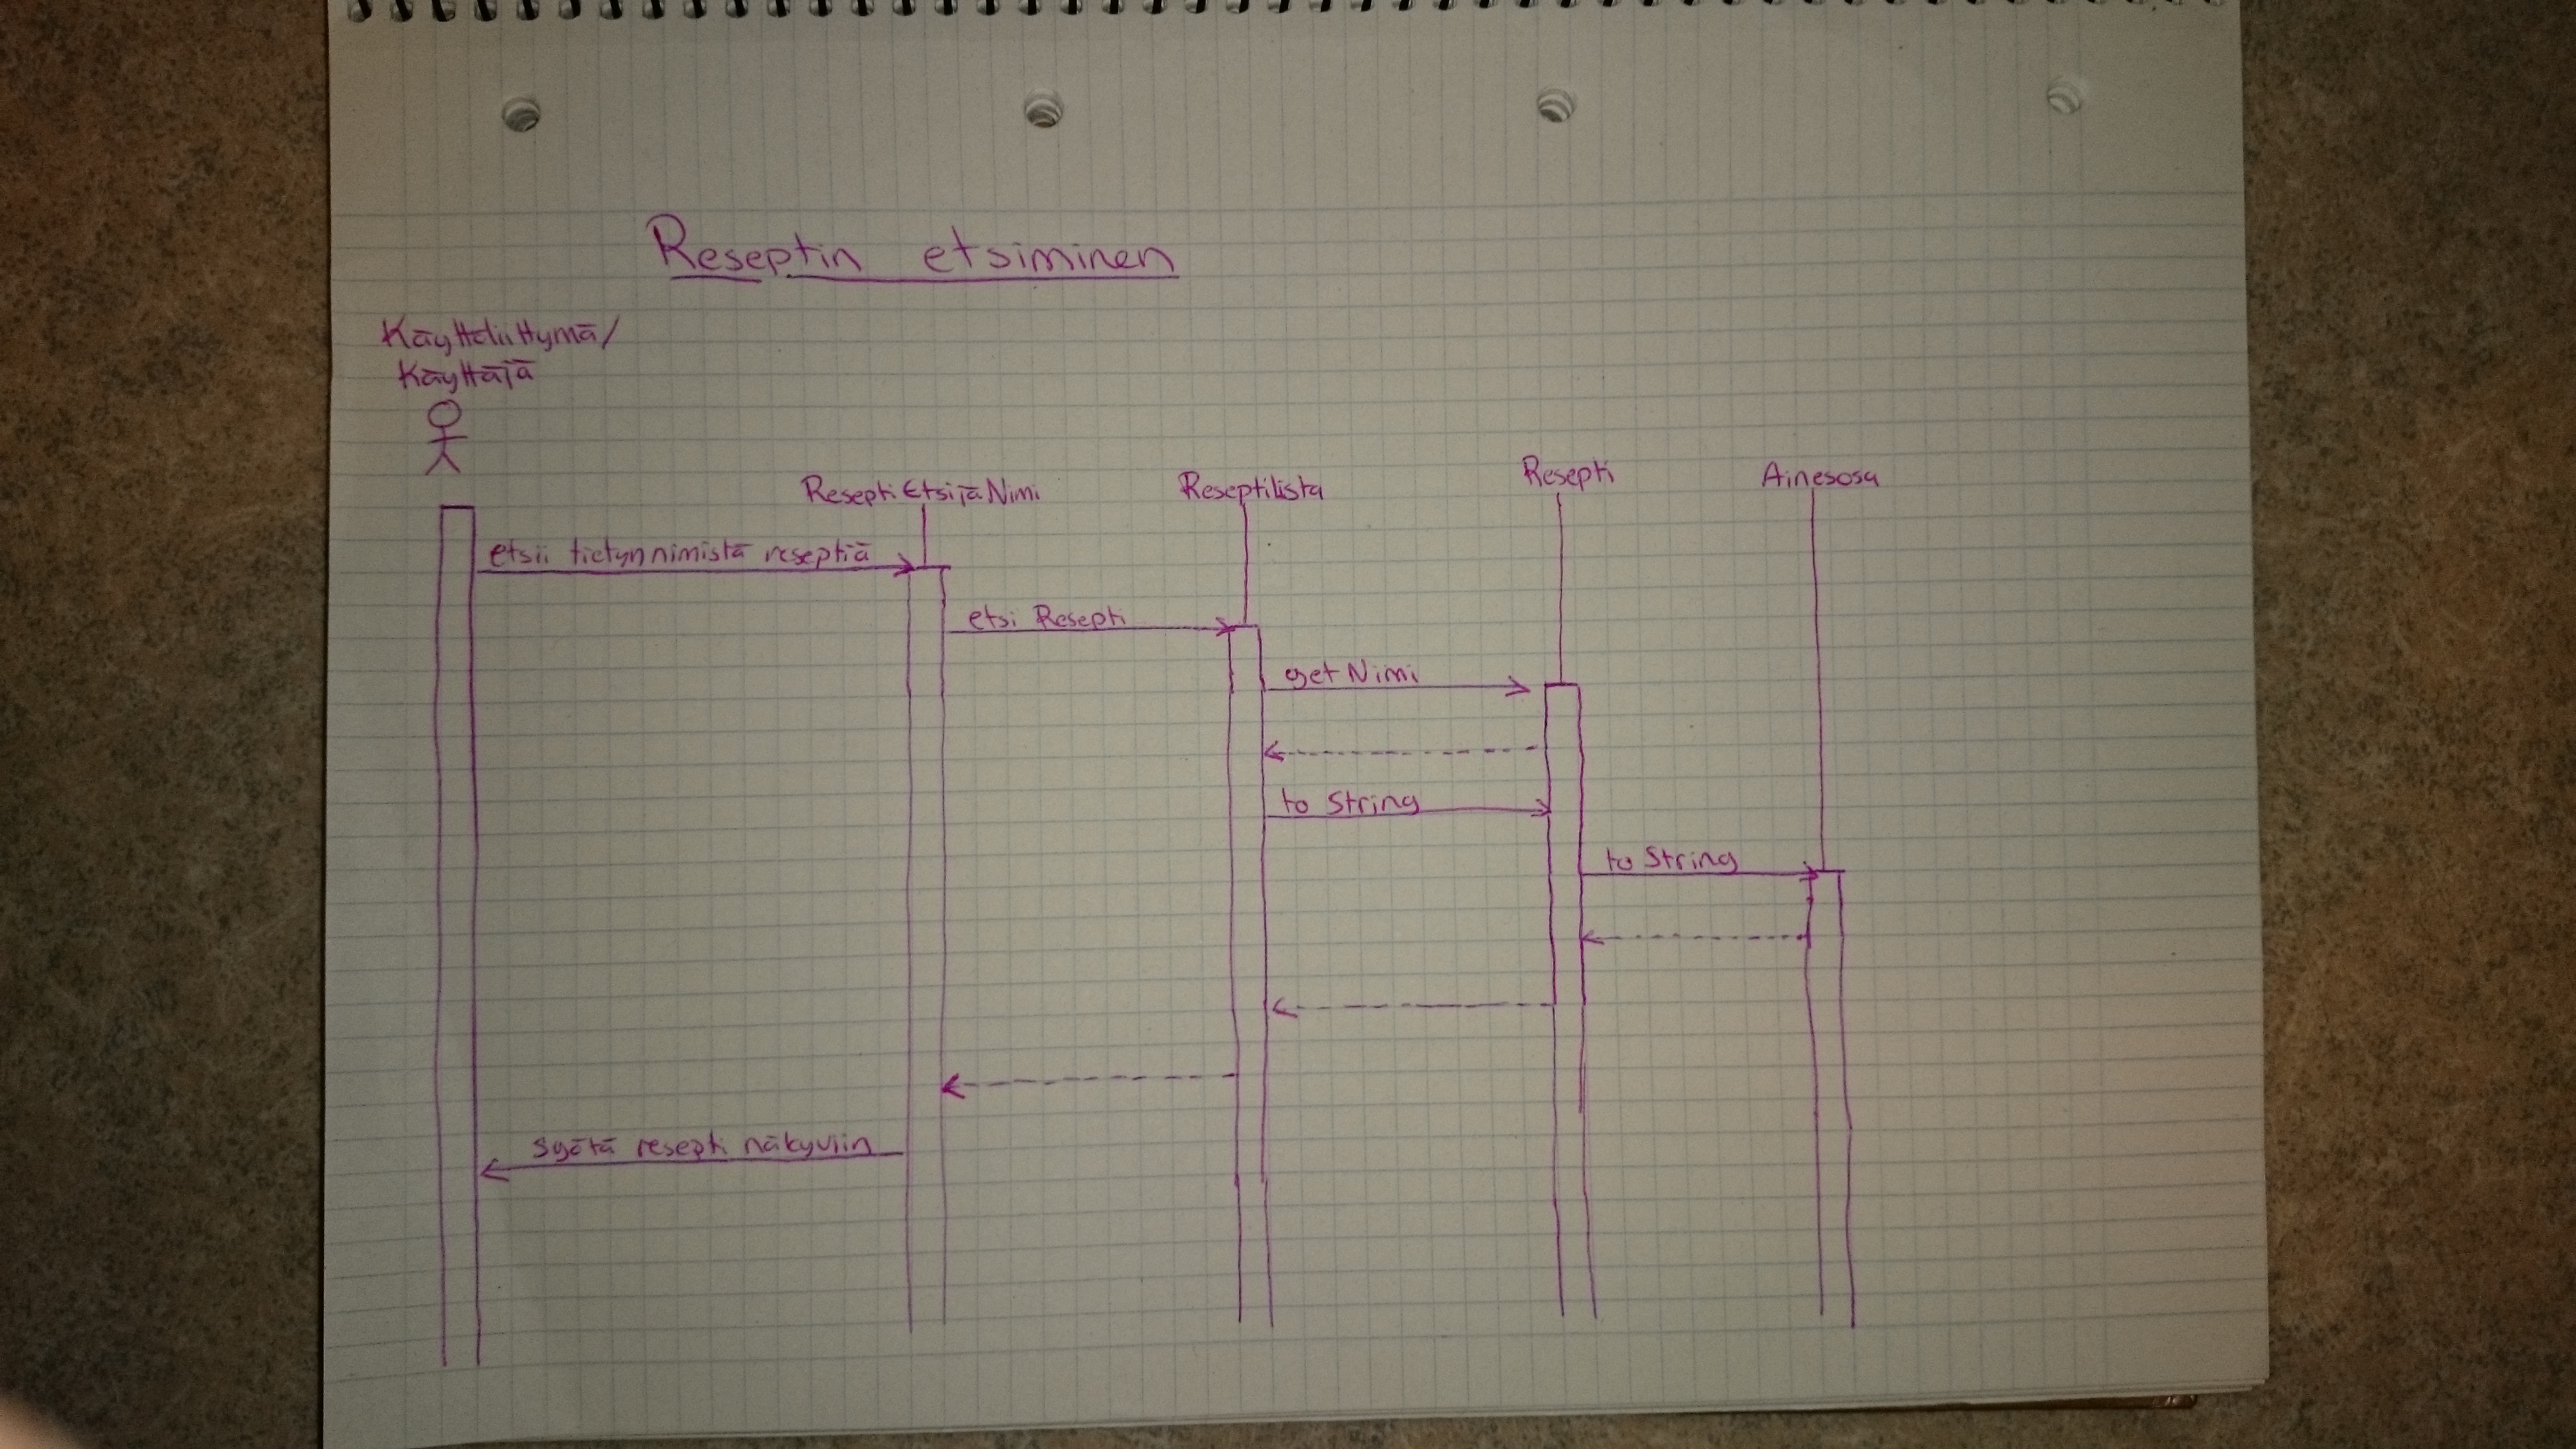 Reseptin etsiminen
Käyttöliittymä/
Käyttäjä
ReseptiEtsijäNimi
Reseptilista
Resepti
Ainesosa
etsii tietynnimistä reseptiä
etsi Resepti
get Nimi
to String
to String
syötä resepti näkyviin